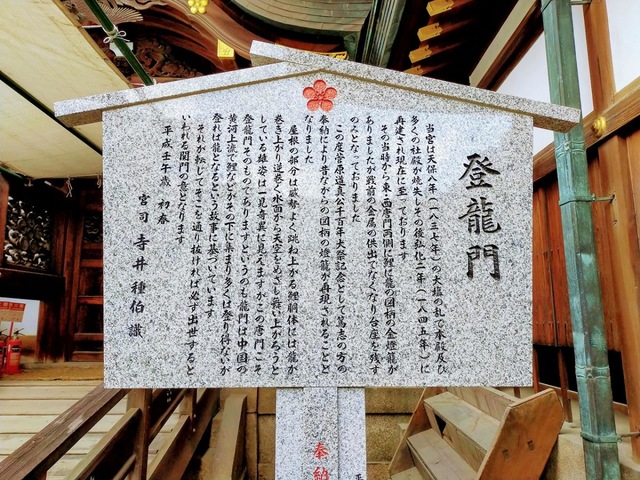 登龍門
当宮は天保八年（一八三七年）の大塩の乱で本殿及び
多くの社殿が焼失しその後弘化二年（一八四五年）に
再建され現在に至っております
その当時から東・西唐門両側に鯉に龍の図柄の金燈籠が
ありましたが戦前の金属の供出でなくなり台座を残す
のみとなっておりました
この度菅原道真公千百年大祭記念として篤志の方の
奉納により昔ながらの図柄の燈籠が再現されることと
なりました
屋根の部分は威勢よく跳ね上がる鯉胴体には龍が
巻き上がり逆巻く水面から天空をめざし舞い上がろうと
している雄姿は一見奇異に見えますがこの唐門こそ
登龍門そのものでありますというのも龍門は中国の
黄河上流で鯉などがその下に集まり多くは登り得ないが
登れば龍となるという故事に基づいています
それが転じてそこを通り抜ければ必ず出世すると
いわれる関門の意となります
平成壬午歳 初春
宮司 寺井種伯 識
奉納